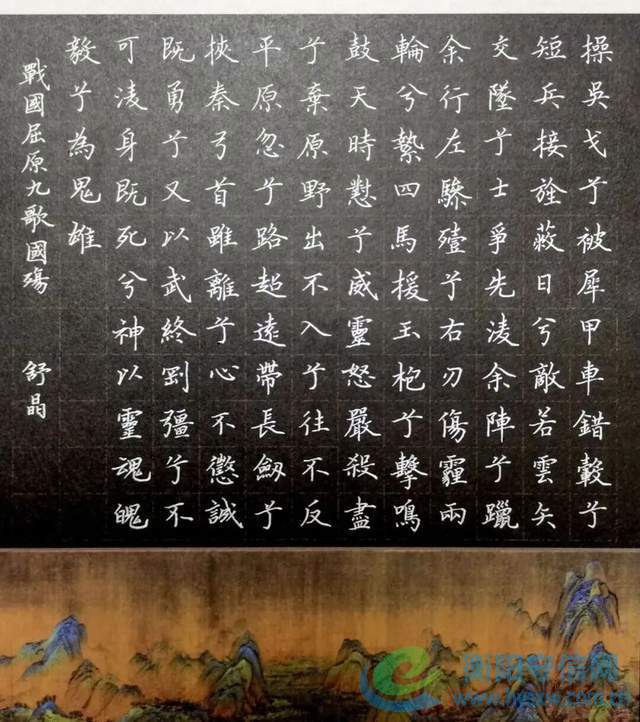 操吳戈兮被犀甲車錯轂兮
短兵接旌蔽日兮敵若雲矢
交墜兮士爭先淩余陣兮躐
余行左驂殪兮右刃傷霾兩
輪兮縶四馬援玉枹兮擊鳴
鼓天時懟兮威靈怒嚴殺盡
兮棄原野出不入兮往不反
平原忽兮路超遠帶長劒兮
挾秦弓首雖離兮心不懲誠
既勇兮又以武終剛彊兮不
可淩身既死兮神以靈魂魄
毅兮為鬼雄
戰國屈原九歌國殤 舒晶